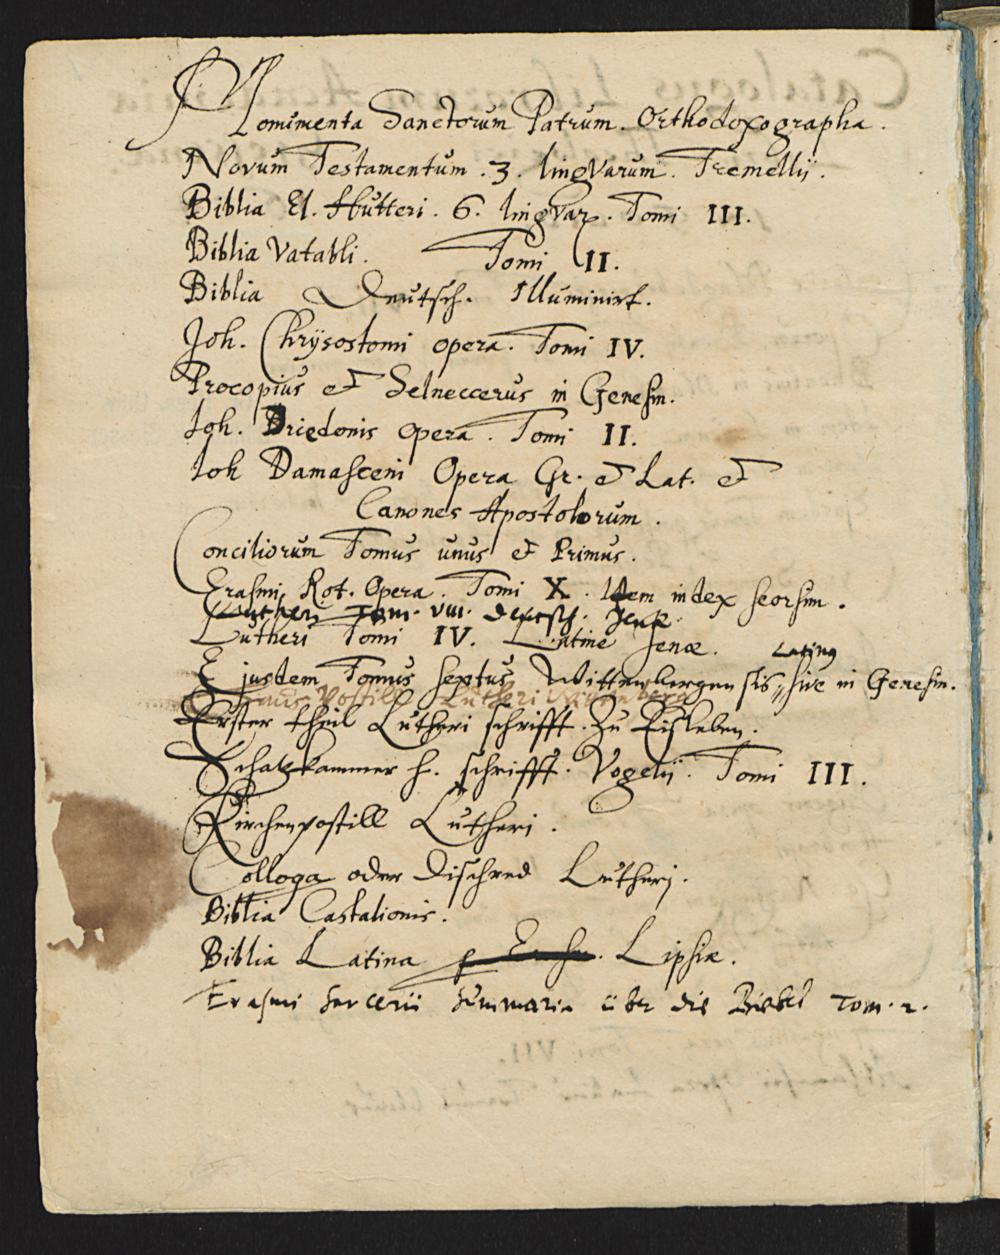 Monumenta Sanctorum Patrum. Orthodoxographa.
Novum Testamentum .3. lingVarum. Tremellij.
Biblia El. Hutteri. 6. lingVar. Tomi III.
Biblia Vatabli. Tomi II.
Biblia Deutsch. Illuminirt.
Joh. Chrÿsostomi opera. Tomi IV.
Procopius et Selneccerus in Genesin.
Joh. Driedonis Opera. Tomi II.
Joh Damasceni Opera Gr. et Lat. et
Canones Apostolorum.
Conciliorum Tomus unus et Primus.
Erasmi Rot. Opera. Tomi X. Item index seorsim.
Tom. VIII. Deutsch. Jenæ.
Lutheri Tomi IV. Latine Jenæ.
Latinus
Ejusdem Tomus septus Wittenbergensis, sive in Genesin.
Haus Postill Lutheri
Erster theil Lutheri schrifft. Zu Eisleben.
Schatzkammer h. schrifft. Vogelij. Tomi III.
Kirchenpostill Lutheri.
Colloqa oder Dischred Lutherj.
Biblia Castalionis.
Biblia Latina Lipsiæ.
Erasmi Sarcerii Summaria über die Biebel Tom. 2.